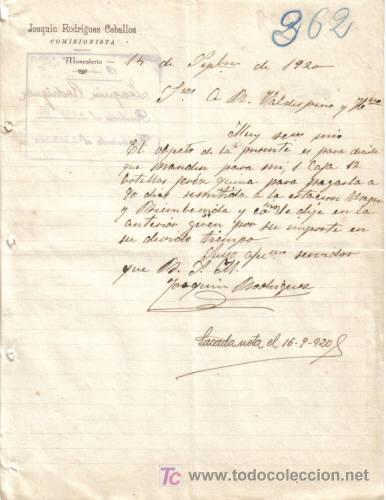 362
Joaquín Rodríguez Ceballos
COMISIONISTA
Monesterio
14 de Sepbre de 1920
Sres A. R. Valdespino y Hno
Muy sres mio
El objeto de la presente es para decirle
que manden para mi, 1 Caja 12
botellas jeréz quina para pagarla a
90 dias remitida a la estacion
y Bienvenida y como le dije en la
anterior giren por su importe en
su devido tiempo
Suyo servidor
que B. S. M.
Joaquin Rodriguez
Sacada nota el 16-9-920
TC
www.todocoleccion.net